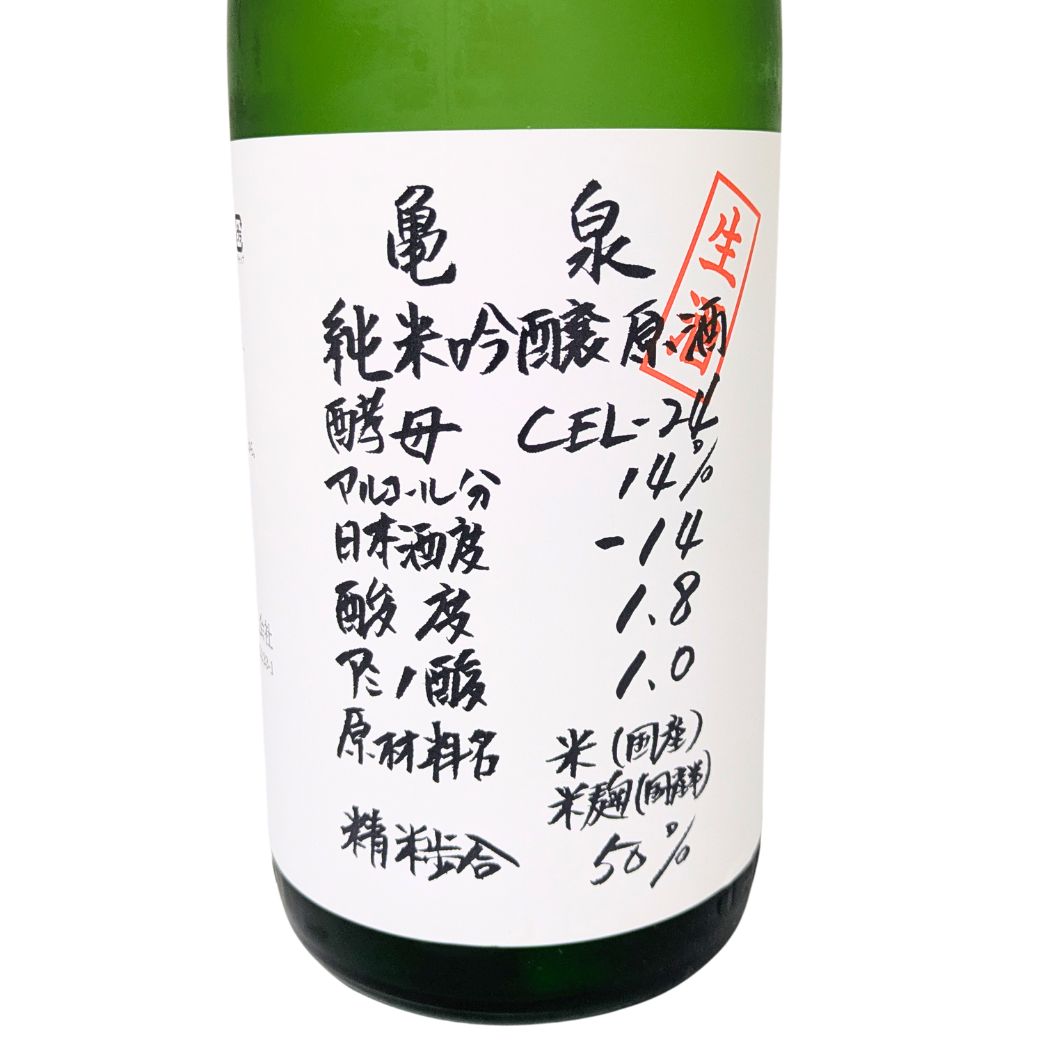 亀泉
生酒
純米吟醸原酒
酵母 CEL-24
アルコール分 14%
日本酒度 -14
酸度 1.8
アミノ酸 1.0
原材料名 米(国産)
米麹(国産米)
精米歩合 50%
会社